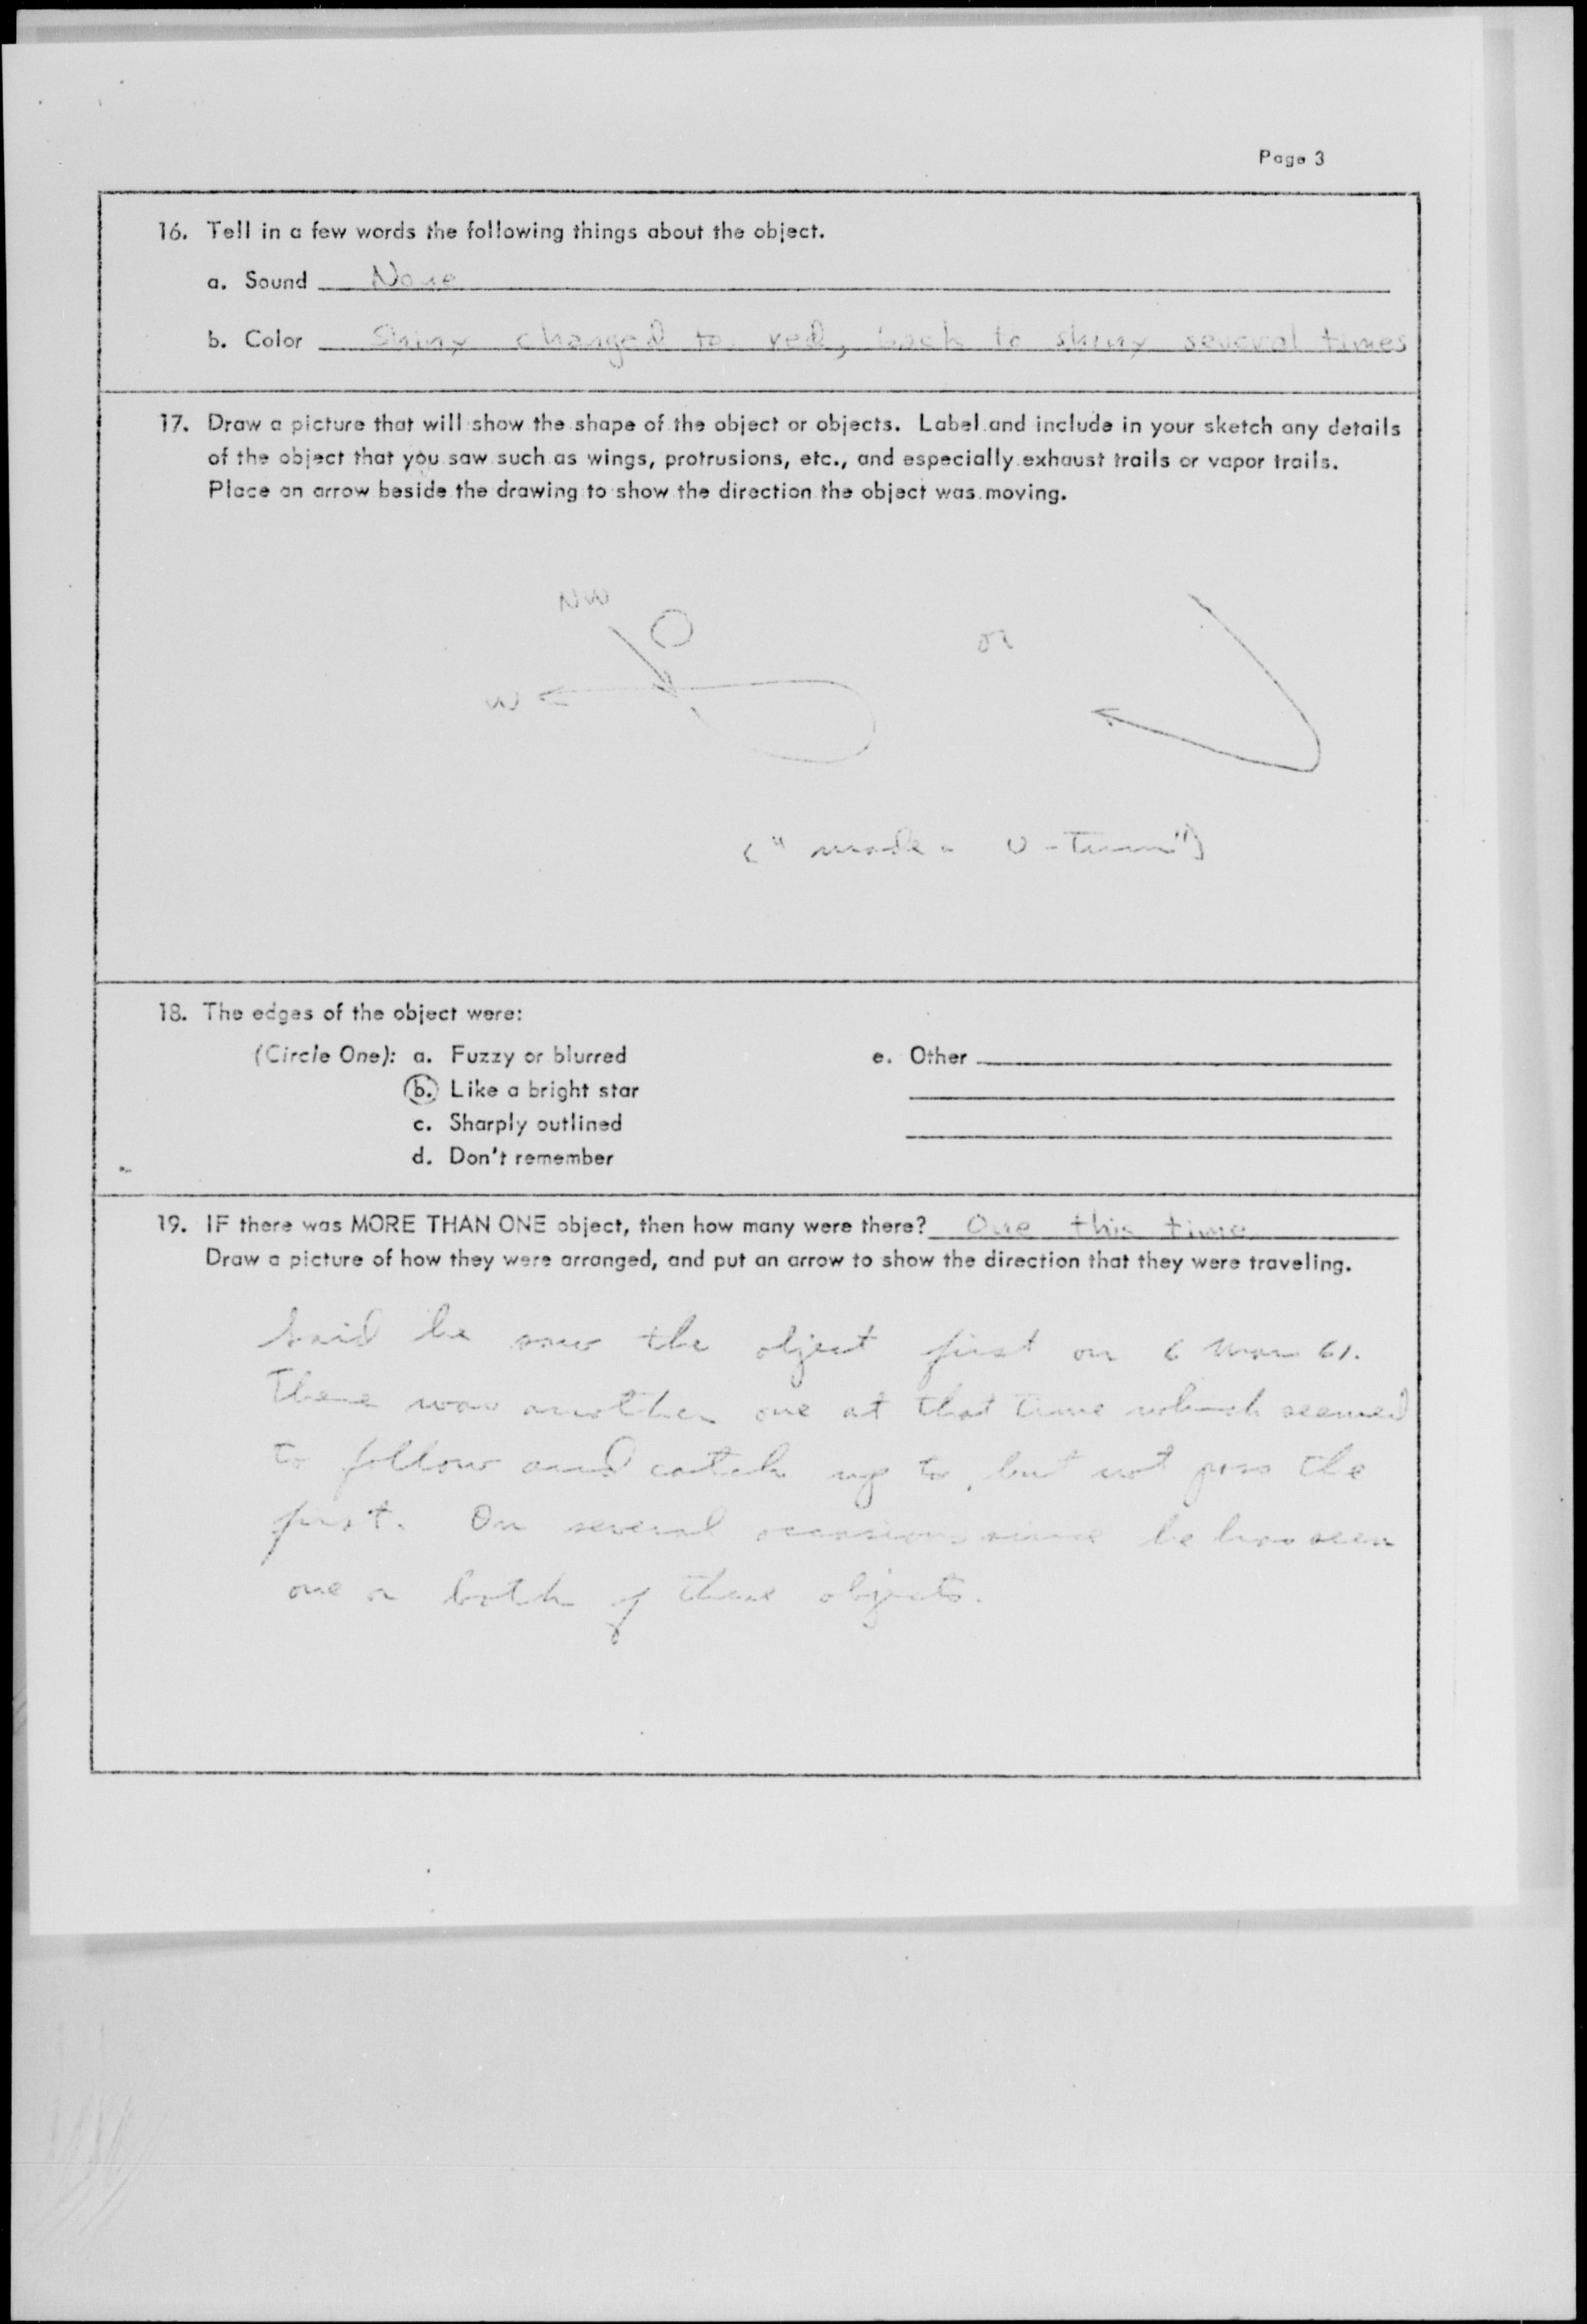 Page 3
16. Tell in a few words the following things about the object.
a. Sound None
b. Color Shiny changed to red, back to shiny several times
17. Draw a picture that will show the shape of the object or objects. Label and include in your sketch any details
of the object that you saw such as wings, protrusions, etc., and especially exhaust trails or vapor trails.
Place an arrow beside the drawing to show the direction the object was moving.
NW
or
W
("made a U-Turn")
18. The edges of the object were:
(Circle One): a. Fuzzy or blurred e. Other
b. Like a bright star
c. Sharply outlined
d. Don't remember
19. IF there was MORE THAN ONE object, then how many were there? One this time
Draw a picture of how they were arranged, and put an arrow to show the direction that they were traveling.
Said he saw the object first on 6 Mar 61.
There was another one at that time which seemed
to follow and catch up to, but not pass the
first. On several occasions since he has seen
one or both of these objects.